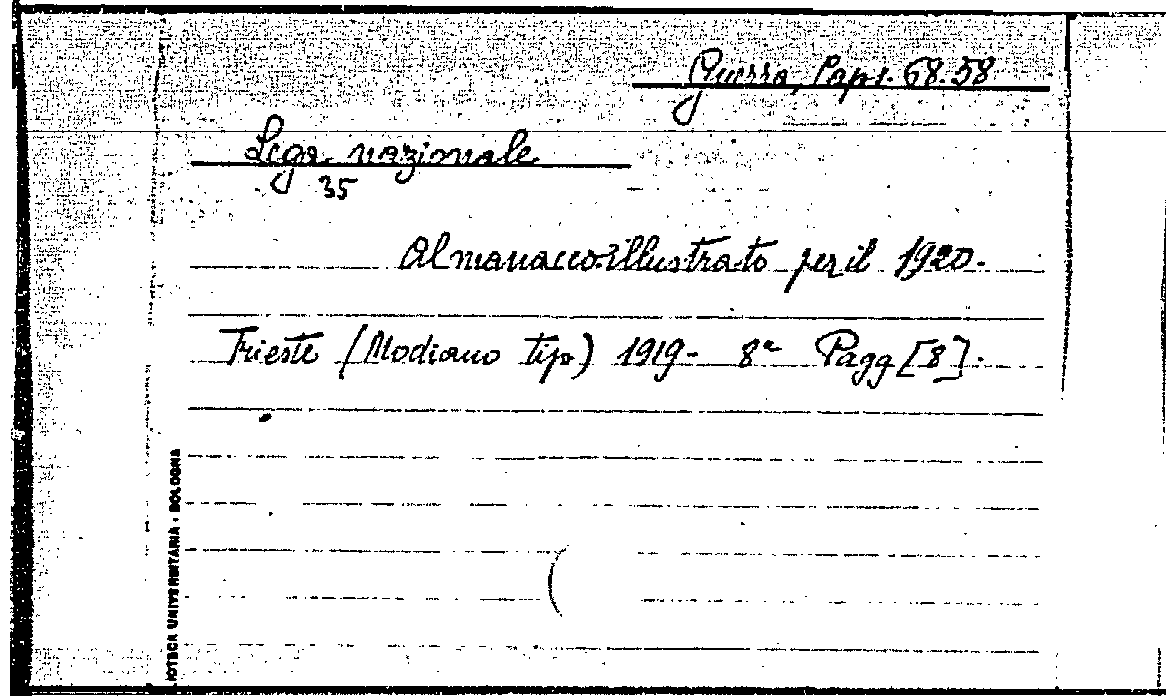 Guerra, Caps. 68.58
Lega nazionale
35
Almanacco illustrato per il 1920.
Trieste (Modiano tip) 1919- 8° Pagg [8].
IOTECA UNIVERSITARIA - BOLOGNA